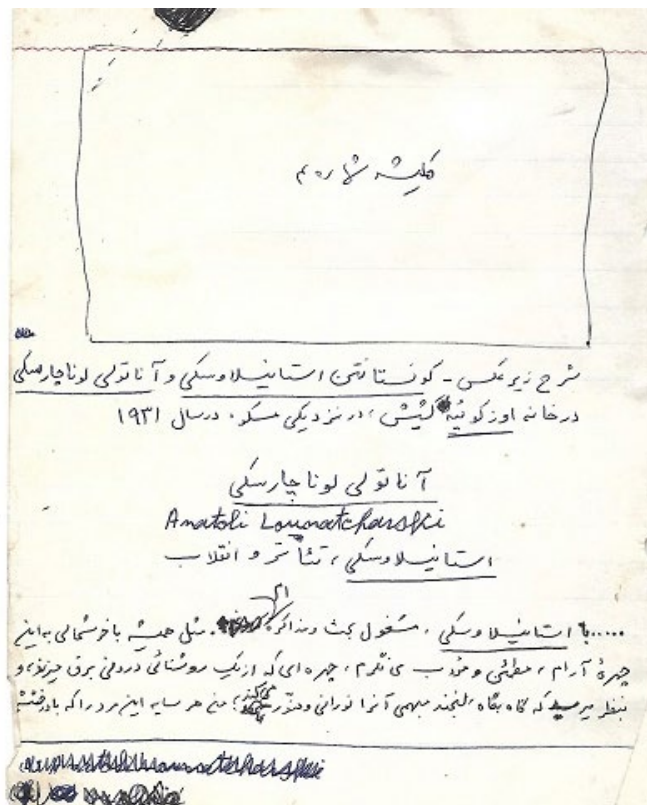 کلیشه شماره ۲
شرح زیر عکس - کونستانتن استانیسلاوسکی و آناتولی لوناچارسکی
در خانه اوزکوئیه گیش، در نزدیکی مسکو. در سال ۱۹۳۱
آناتولی لوناچارسکی
Anatoli Lounatcharski
استانیسلاوسکی، تئآتر و انقلاب
.....با استانیسلاوسکی، مشغول بحث و مذاکره ام. مثل همیشه با خوشحالی به این
چهرهٔ آرام، مطمئن و مؤدب می نگرم، چهره ای که از یک روشنائی درونی برق میزند، و
بنظر میرسد که گاه بگاه، لبخند مبهمی آنرا نورانی و منوّر میکند؛ من هر سایه این مرد را که با درخشش